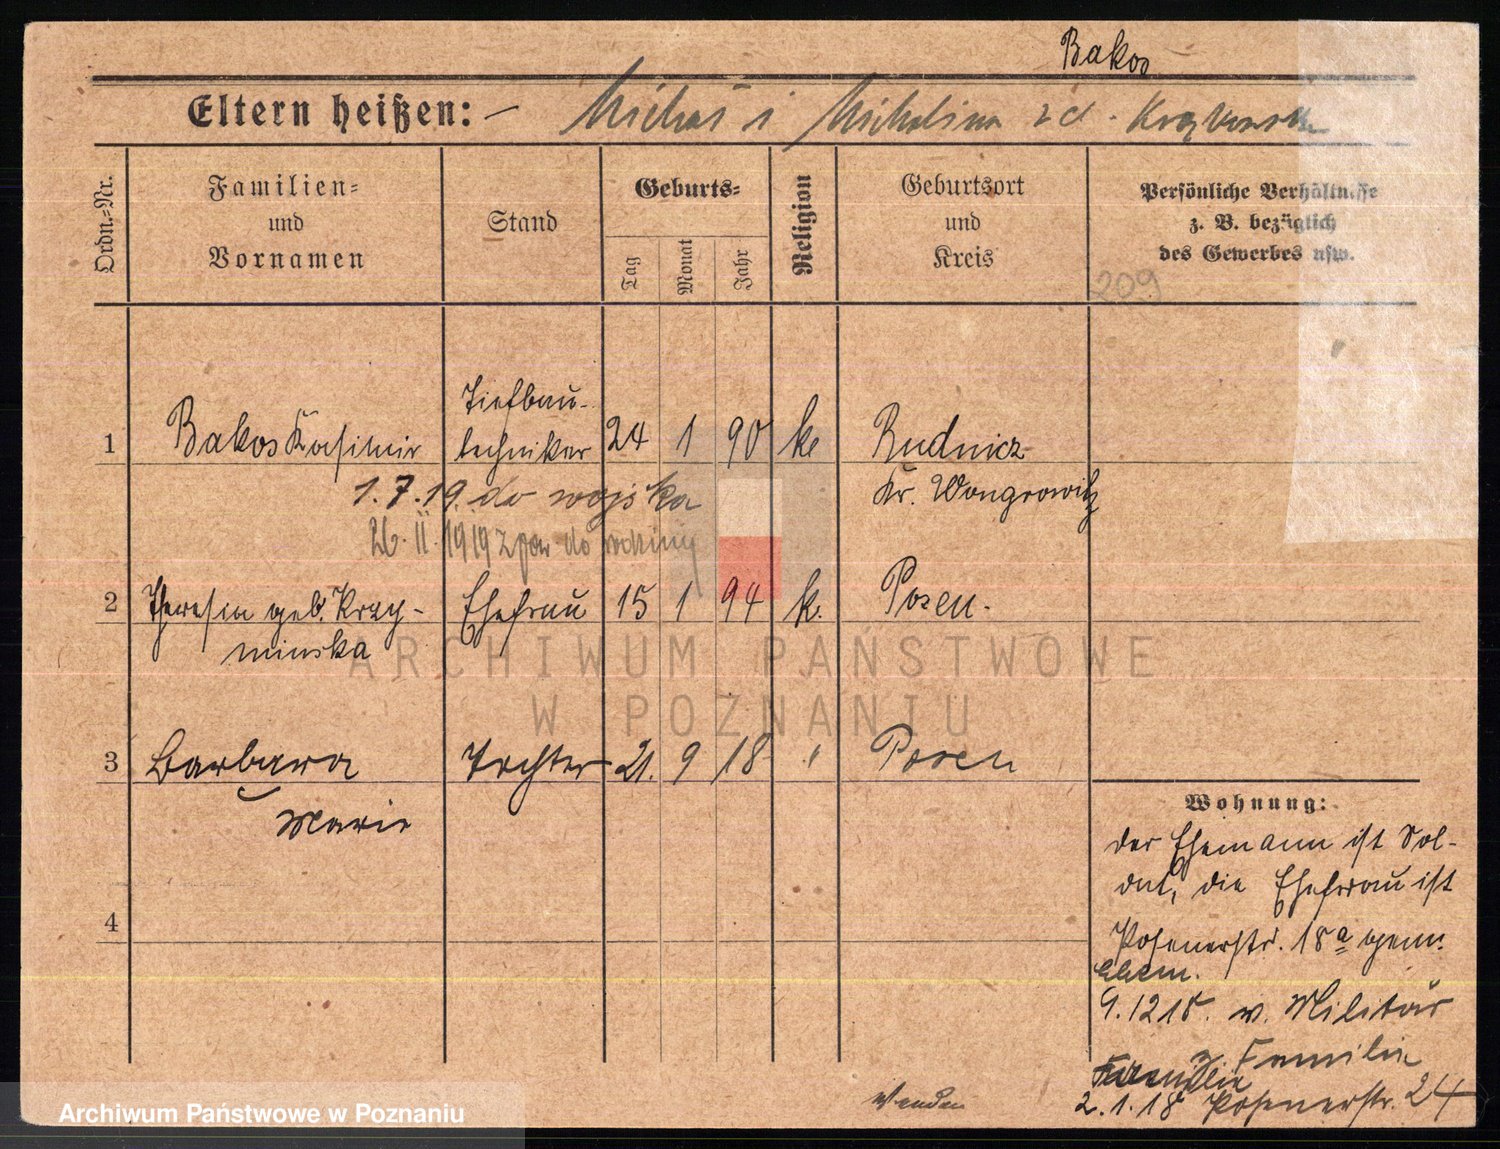 Bakos
Eltern heißen: — Michał i Michalina zd.
Ordn.=Nr.
Familien=
und
Vornamen
Stand
Geburts=
Tag
Monat
Jahr
Religion
Geburtsort
und
Kreis
Persönliche Verhältnisse
z. B. bezüglich
des Gewerbes usw.
209
Tiefbau-
1 Bakos Kasimir techniker 24 1 90 k. Rudnicz
Kr. Wongrowitz
1.7.19. do wojska
26.II.1919 z pow do rodziny
2 Theresia geb. Krzy- Ehefrau 15 1 94 k. Posen.
minska
3 Barbara Tochter 21. 9 18 Posen
Marie
4
Wohnung:
der Ehemann ist Sol-
dat, die Ehefrau ist
Posenerstr. 18a gem.
Ehem.
9.12 18. v. Militär
z. Familie
Familie
2.1.18 Posenerstr. 24
wenden
ARCHIWUM PAŃSTWOWE
W POZNANIU
Archiwum Państwowe w Poznaniu